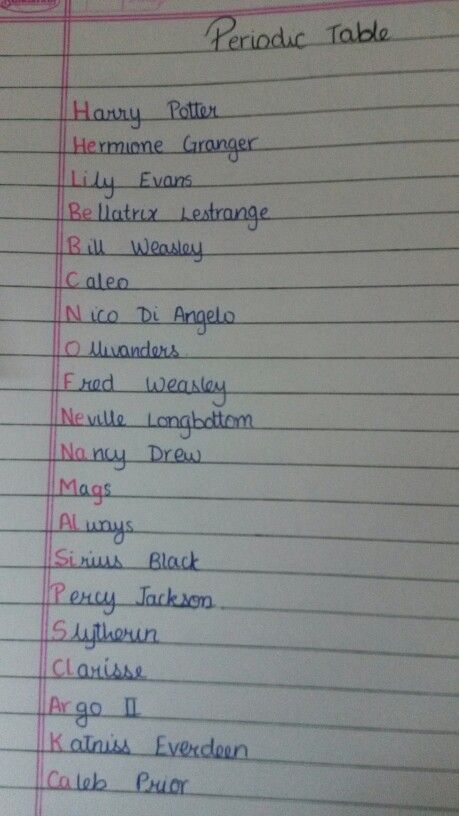 Periodic Table
Harry Potter
Hermione Granger
Lily Evans
Bellatrix Lestrange
Bill Weasley
Caleo
Nico Di Angelo
Ollivanders
Fred Weasley
Neville Longbottom
Nancy Drew
Mags
Always
Sirius Black
Percy Jackson
Slytherin
Clarisse
Argo II
Katniss Everdeen
Caleb Prior